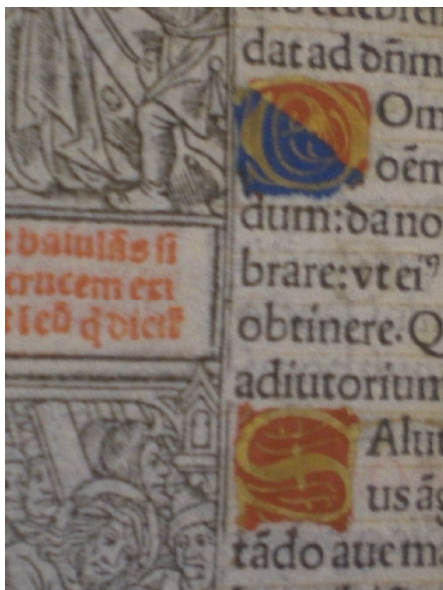 baiulãs si
crucem exi
leũ q̃ dicit᷑
dat ad dñm
Om
oẽm
dum: da no
brare: vt eiꝰ
obtinere. Q
adiutorium
Salut
us ãg
tãdo aue ma